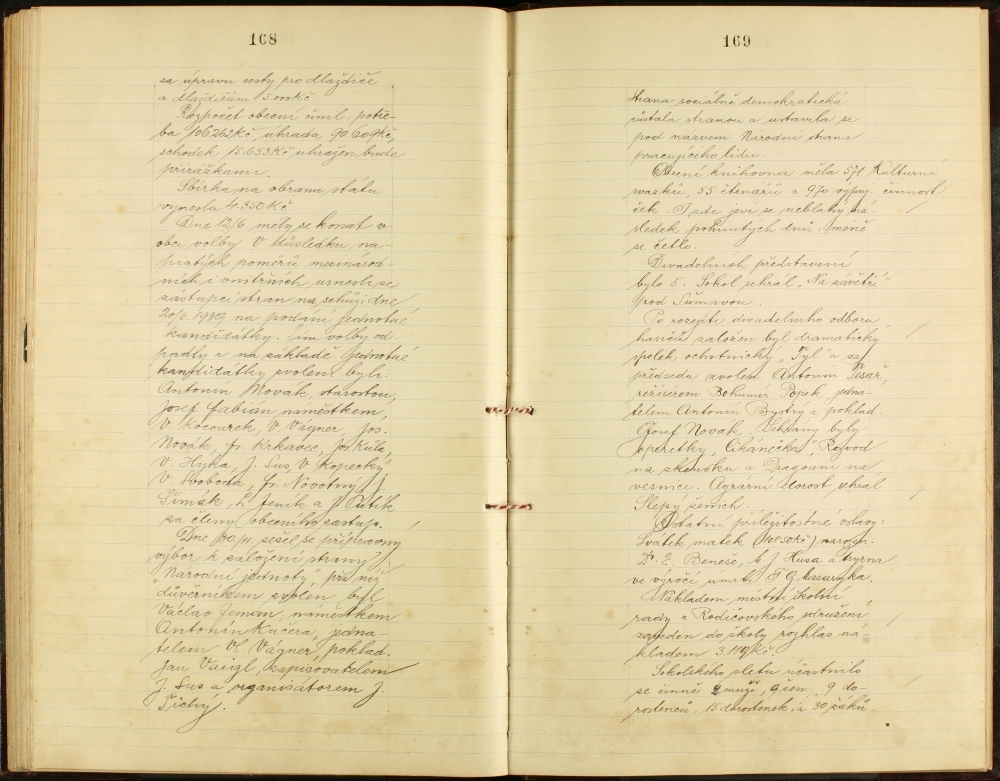 168
za úpravu cesty pro dlaždiče
a dlaždičům 5.000Kč.
Rozpočet obecní činil potře-
ba 106.262Kč, uhrada 90.609Kč,
schodek 15.653Kč uhražen bude
přirážkami.
Sbírka na obranu státu
vynesla 4.350Kč
Dne 12/6. měly se konat v
obci volby. V důsledku na-
pjatých poměrů mezinárod-
ních i vnitřních usnesli se
zástupci stran na schůzi dne
1938 na podání jednotné
kandidátky. Tím volby od-
padly a na základě jednotné
kandidátky zvoleni byli:
Antonín Novák, starostou,
Josef Fabián náměstkem,
V. Kocourek, V. Vágner, Jos.
Novák, Fr. Krkavec, Jos. Kůla,
V. Hyka, J. Sus, V. Kopecký,
V. Svoboda, Fr. Novotný, J.
Šimák, L. Jeník a J. Putík
za členy obecního zastup.
Dne 30/11. sešel se přípravný
výbor k založení strany
„Národní jednoty", při níž
důvěrníkem zvolen byl
Václav Zeman, náměstkem
Antonín Kučera, jedna-
telem Vl. Vágner, poklad.
Jan Vaigl, zapisovatelem
J. Sus a organisátorem J.
Tichý.
169
strana sociálně demokratická
zůstala stranou a ustavila se
pod názvem Národní strana
pracujícího lidu.
Obecní knihovna měla 571 Kulturní
svazků, 55 čtenářů a 970 výpůj. činnost
ček. I zde jeví se neblahý ná-
sledek pohnutých dnů, méně
se četlo.
Divadelních představení
bylo 5. Sokol sehrál „Na závětří
pod Šumavou.
Po rozejití divadelního odboru
hasičů založen byl dramatický
spolek ochotnický „Tyl" a za
předsedu zvolen Antonín Tesař,
režisérem Bohumír Popek, jedna-
telem Antonín Bystrý a poklad.
Josef Novák. Sehrány byly
operetky „Cikánečka", Rozvod
na zkoušku a Dragouni na
vesnici. Agrární dorost sehrál
Slepý ženich.
Ostatní příležitostné oslavy:
Svátek matek narozen.
Dr. E. Beneše, M. J. Husa a tryzna
ve výročí úmrtí T G Masaryka.
Nákladem místní školní
rady a Rodičovského sdružení
zaveden do školy rozhlas ná-
kladem 3.119Kč.
Sokolského sletu účastnilo
se cvičně 2 muži, 9 žen, 9 do-
rostenců, 15 dorostenek a 30 žáků.